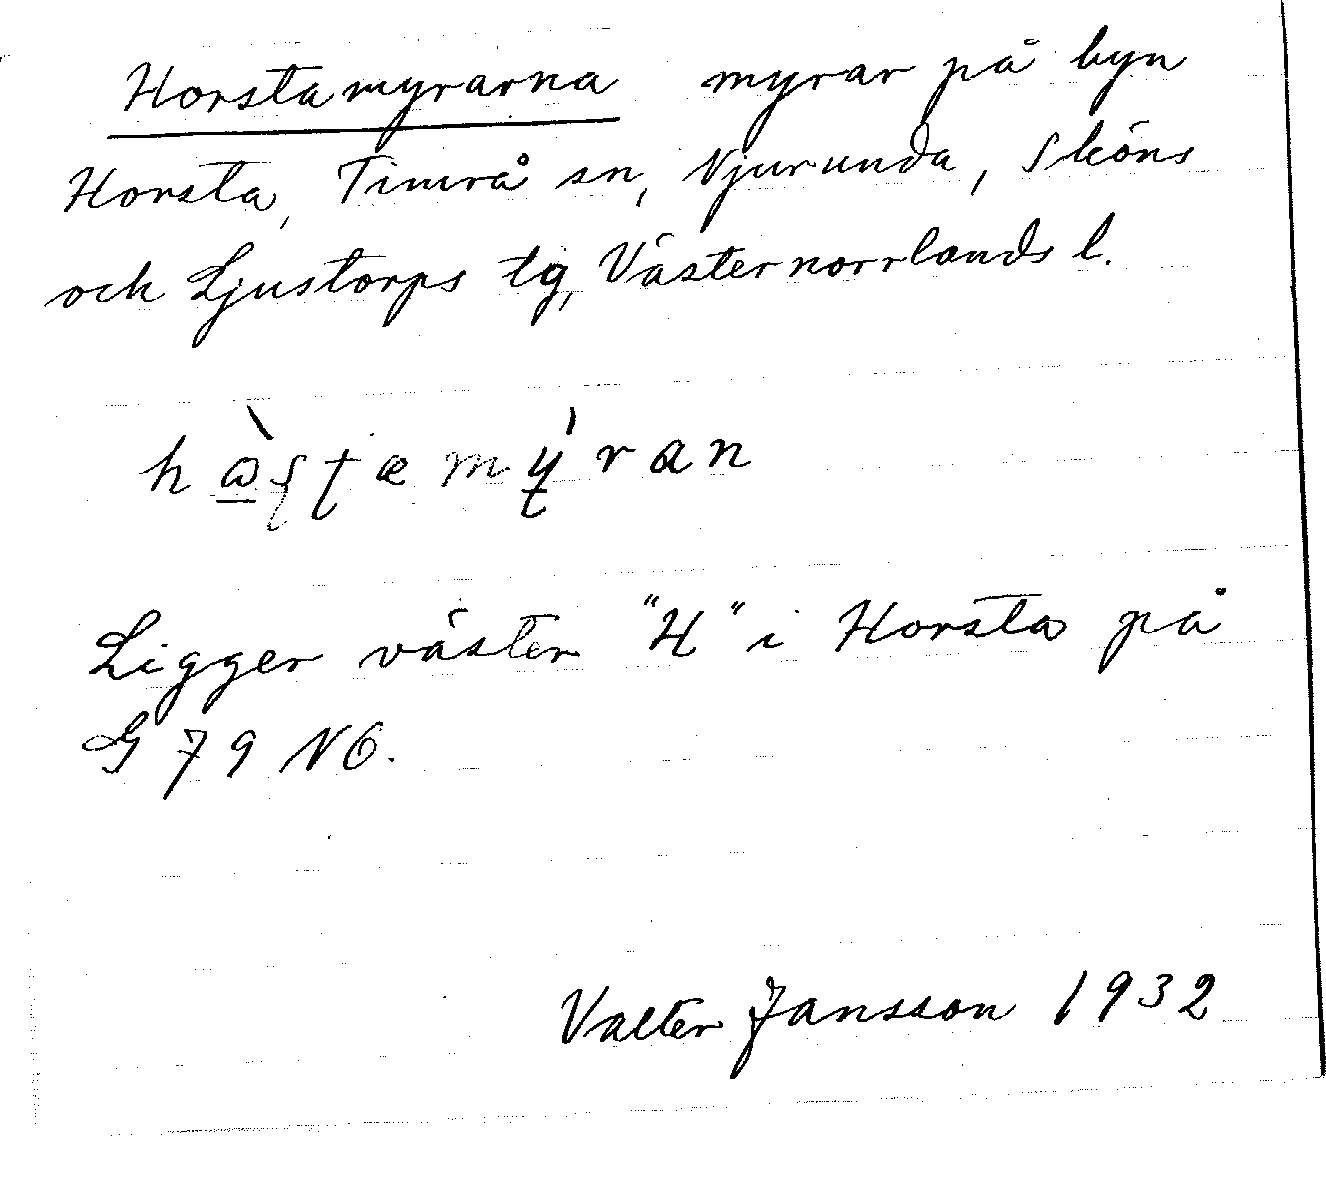 Horstamyrarna myrar på byn
Horsta, Timrå sn, Njurunda, Sköns
och Ljustorps tg, Västernorrlands l.
Ligger väster "H" i Horsta på
G 79 NO.
Valter Jansson 1932